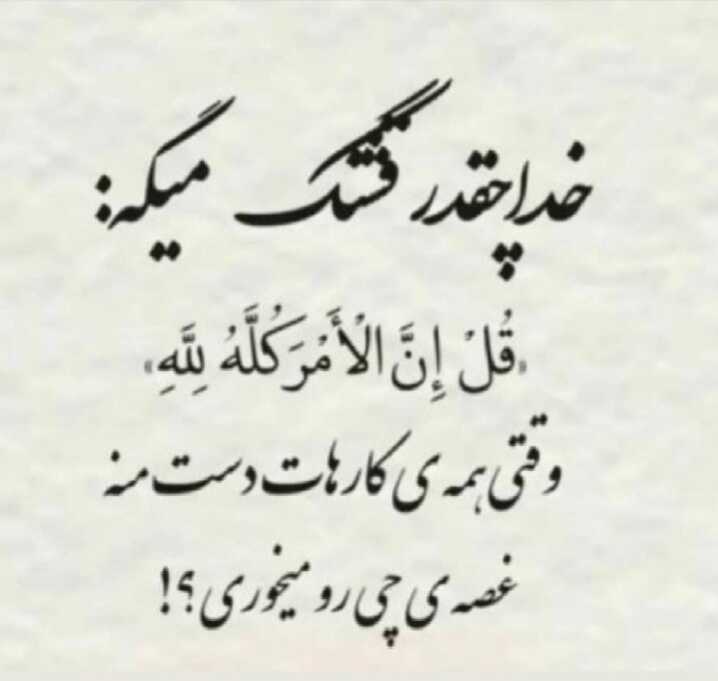 خدا چقدر قشنگ میگه:
«قُلْ إِنَّ الْأَمْرَ كُلَّهُ لِلَّهِ»
وقتی همه ی کارهات دست منه
غصه ی چی رو میخوری؟!